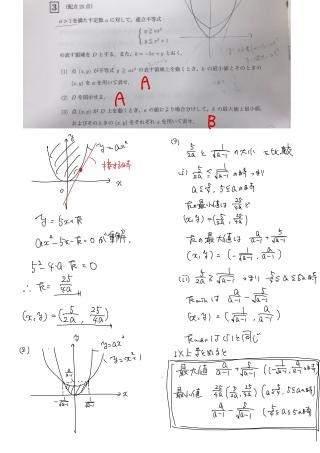 3 (配点25点)
a>1を満たす定数aに対して,連立不等式
{ y ≧ ax²
y ≦ x²+1
の表す領域をDとする。また, k=-5x+y とおく。
(1) 点(x, y)が不等式 y ≧ ax² の表す領域上を動くとき, kの最小値とそのときの
(x, y)をaを用いて表せ。
A
(2) Dを図示せよ。
A
(3) 点(x, y)がD上を動くとき, aの値により場合分けして, kの最大値と最小値,
およびそのときの(x, y)をそれぞれaを用いて表せ。
B
y y=ax²
接する時
0 x
y=5x+k
ax²-5x-k=0が重解,
5²-4·a·k=0
∴ k=25/4a
(x,y)=(5/2a, 25/4a)
(2)
y y=ax²
y=x²+1
a/a-1
-1/√a-1 1/√a-1 x
(3)
5/2a と 1/√a-1 の大小 を比較
(i) 5/2a ≦ 1/√a-1 の時
a≦5/4, 5≦aの時
kの最小値は 25/4a
(x,y)=(5/2a, 25/4a)
kの最大値は a/a-1 + 5/√a-1
(x,y)=(-1/√a-1, a/a-1)
(ii) 5/2a ≧ 1/√a-1 つまり 5/4≦a≦5の時
kminは a/a-1 - 5/√a-1
(x,y)=(1/√a-1, a/a-1)
kmaxは(i)と同じ
以上をまとめると
最大値 a/a-1 + 5/√a-1 (-1/√a-1, a/a-1の時)
最小値 25/4a (5/2a, 25/4a) (a≦5/4, 5≦aの時)
a/a-1 - 5/√a-1 (5/4≦a≦5の時)